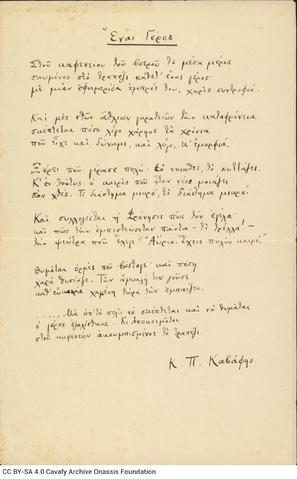 Ένας Γέρος
Στου καφενείου του βοερού το μέσα μέρος
σκυμένος στο τραπέζι κάθετ' ένας γέρος·
με μιαν εφημερίδα εμπρός του, χωρίς συντροφιά.
Και μες στων άθλιων γηρατειών την καταφρόνεια
σκέπτεται πόσο λίγο χάρηκε τα χρόνια
που είχε και δύναμι, και λόγο, κ' εμορφιά.
Ξέρει που γέρασε πολύ· το νοιώθει, το κυττάζει.
Κ' εν τούτοις ο καιρός που ήταν νέος μοιάζει
σαν χθες. Τι διάστημα μικρό, τι διάστημα μικρό.
Και συλλογιέται η Φρόνησις πως τον εγέλα·
και πως την εμπιστεύονταν πάντα — τι τρέλλα! —
την ψεύτρα που έλεγε· «Αύριο. Έχεις πολύν καιρό.»
Θυμάται ορμές που βάσταγε· και πόση
χαρά θυσίαζε. Την άμυαλή του γνώσι
κάθ' ευκαιρία χαμένη τώρα την εμπαίζει.
.... Μα απ' το πολύ να σκέπτεται και να θυμάται
ο γέρος εζαλίσθηκε. Κι αποκοιμάται
στου καφενείου ακουμπισμένος το τραπέζι.
Κ. Π. Καβάφης
CC BY-SA 4.0 Cavafy Archive Onassis Foundation